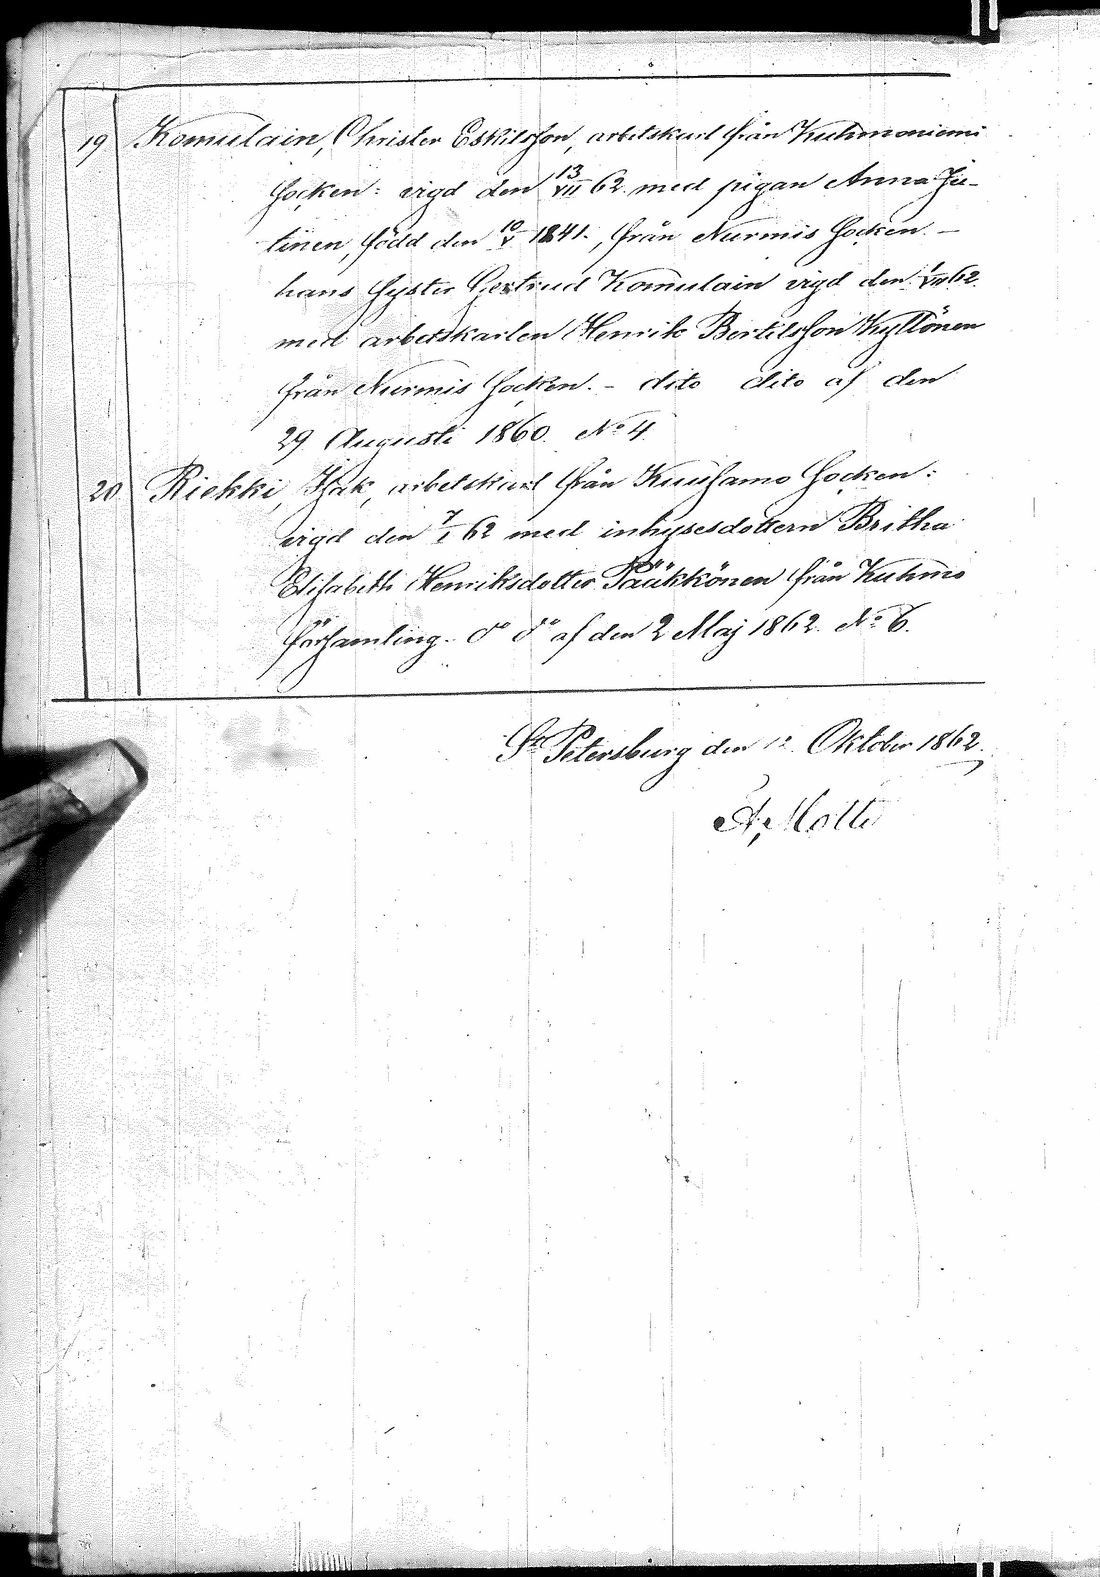 19 Komulain, Christer Eskilsson, arbetskarl från Kuhmoniemi
Socken: vigd den 13/VII 62 med pigan Anna Ju-
tinen, född den 10/V 1841., från Nurmis Socken. –
hans Syster Gertrud Komulain vigd den 1/VII 62
med arbetskarlen Henrik Bertilsson Kyllönen
från Nurmis Socken. – dito dito af den
29 Augusti 1860. No 4.
20. Riekki, Isak, arbetskarl från Kuusamo Socken:
vigd den 7/I 62 med inhysesdottern Britha
Elisabeth Henriksdotter Pääkkönen från Kuhmo
församling. do do af den 2 Maj 1862. No 6.
St Petersburg den 12 Oktober 1862.